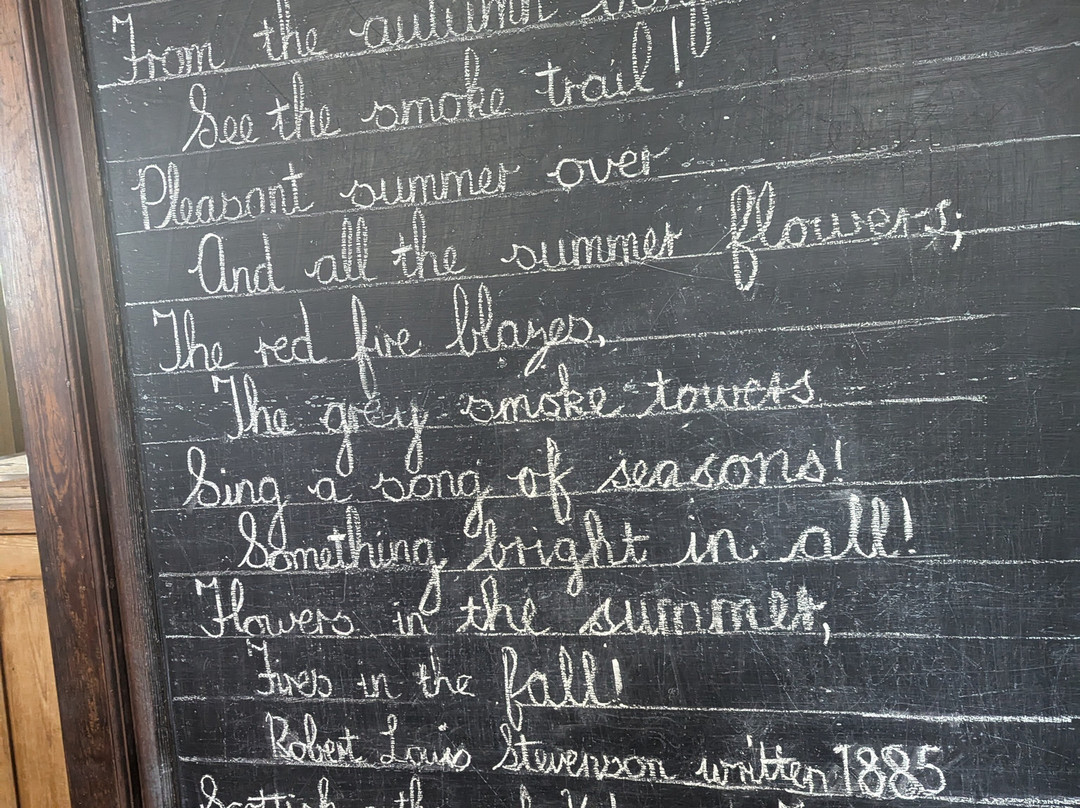 From the autumn
See the smoke trail!
Pleasant summer over
And all the summer flowers;
The red fire blazes,
The grey smoke towers
Sing a song of seasons!
Something bright in all!
Flowers in the summer,
Fires in the fall!
Robert Louis Stevenson written 1885
Scottish